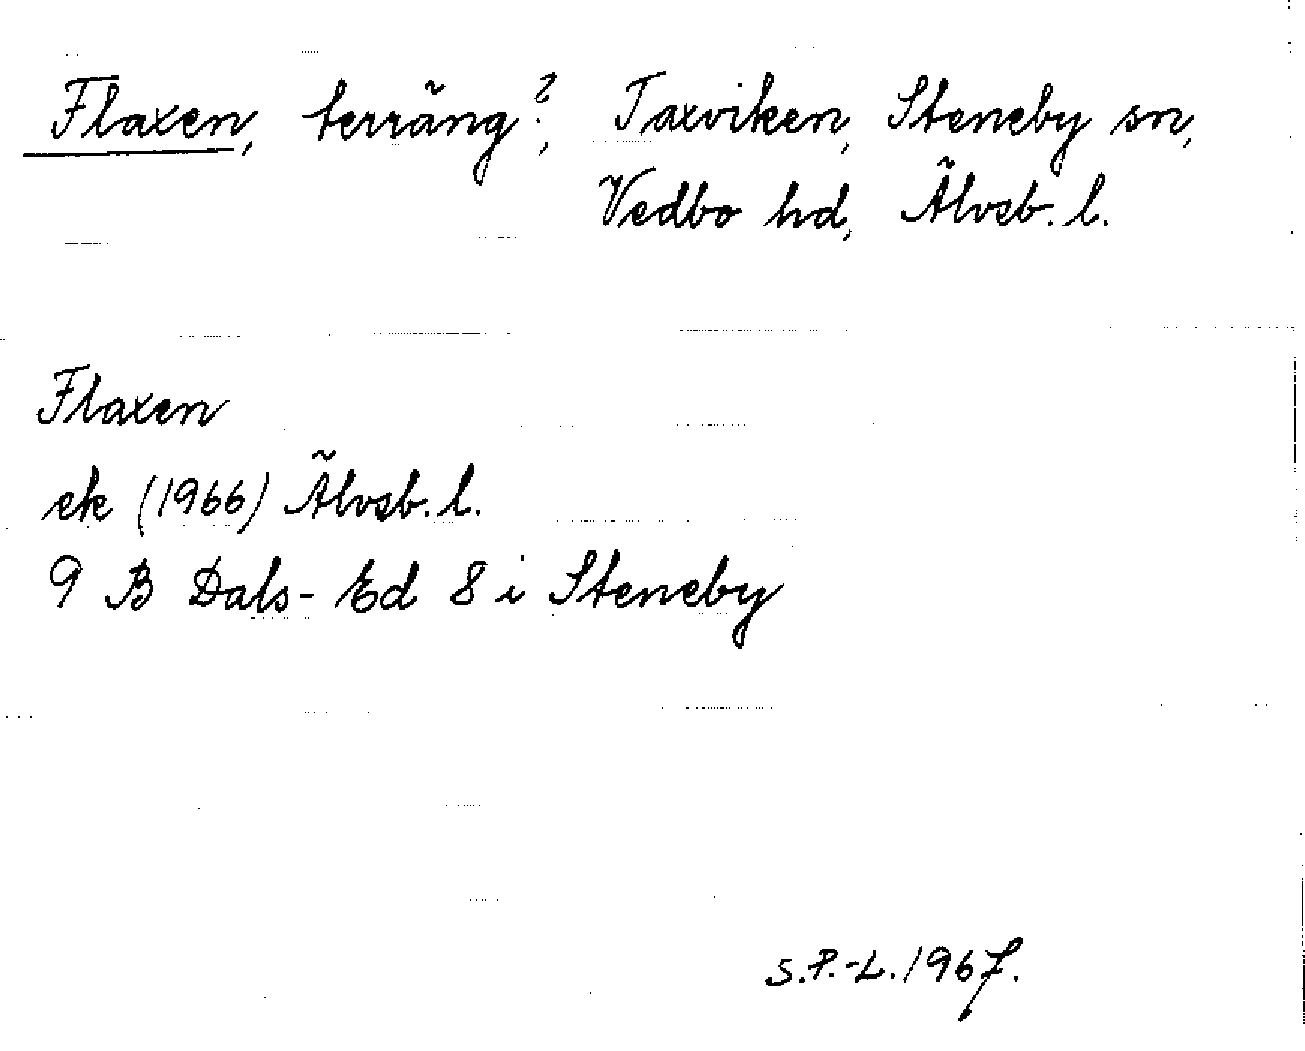 Flaxen, terräng?, Taxviken, Steneby sn,
Vedbo hd, Älvsb. l.
Flaxen
ek (1966) Älvsb. l.
9 B Dals-Ed 8 i Steneby
S.P.-L. 1967.